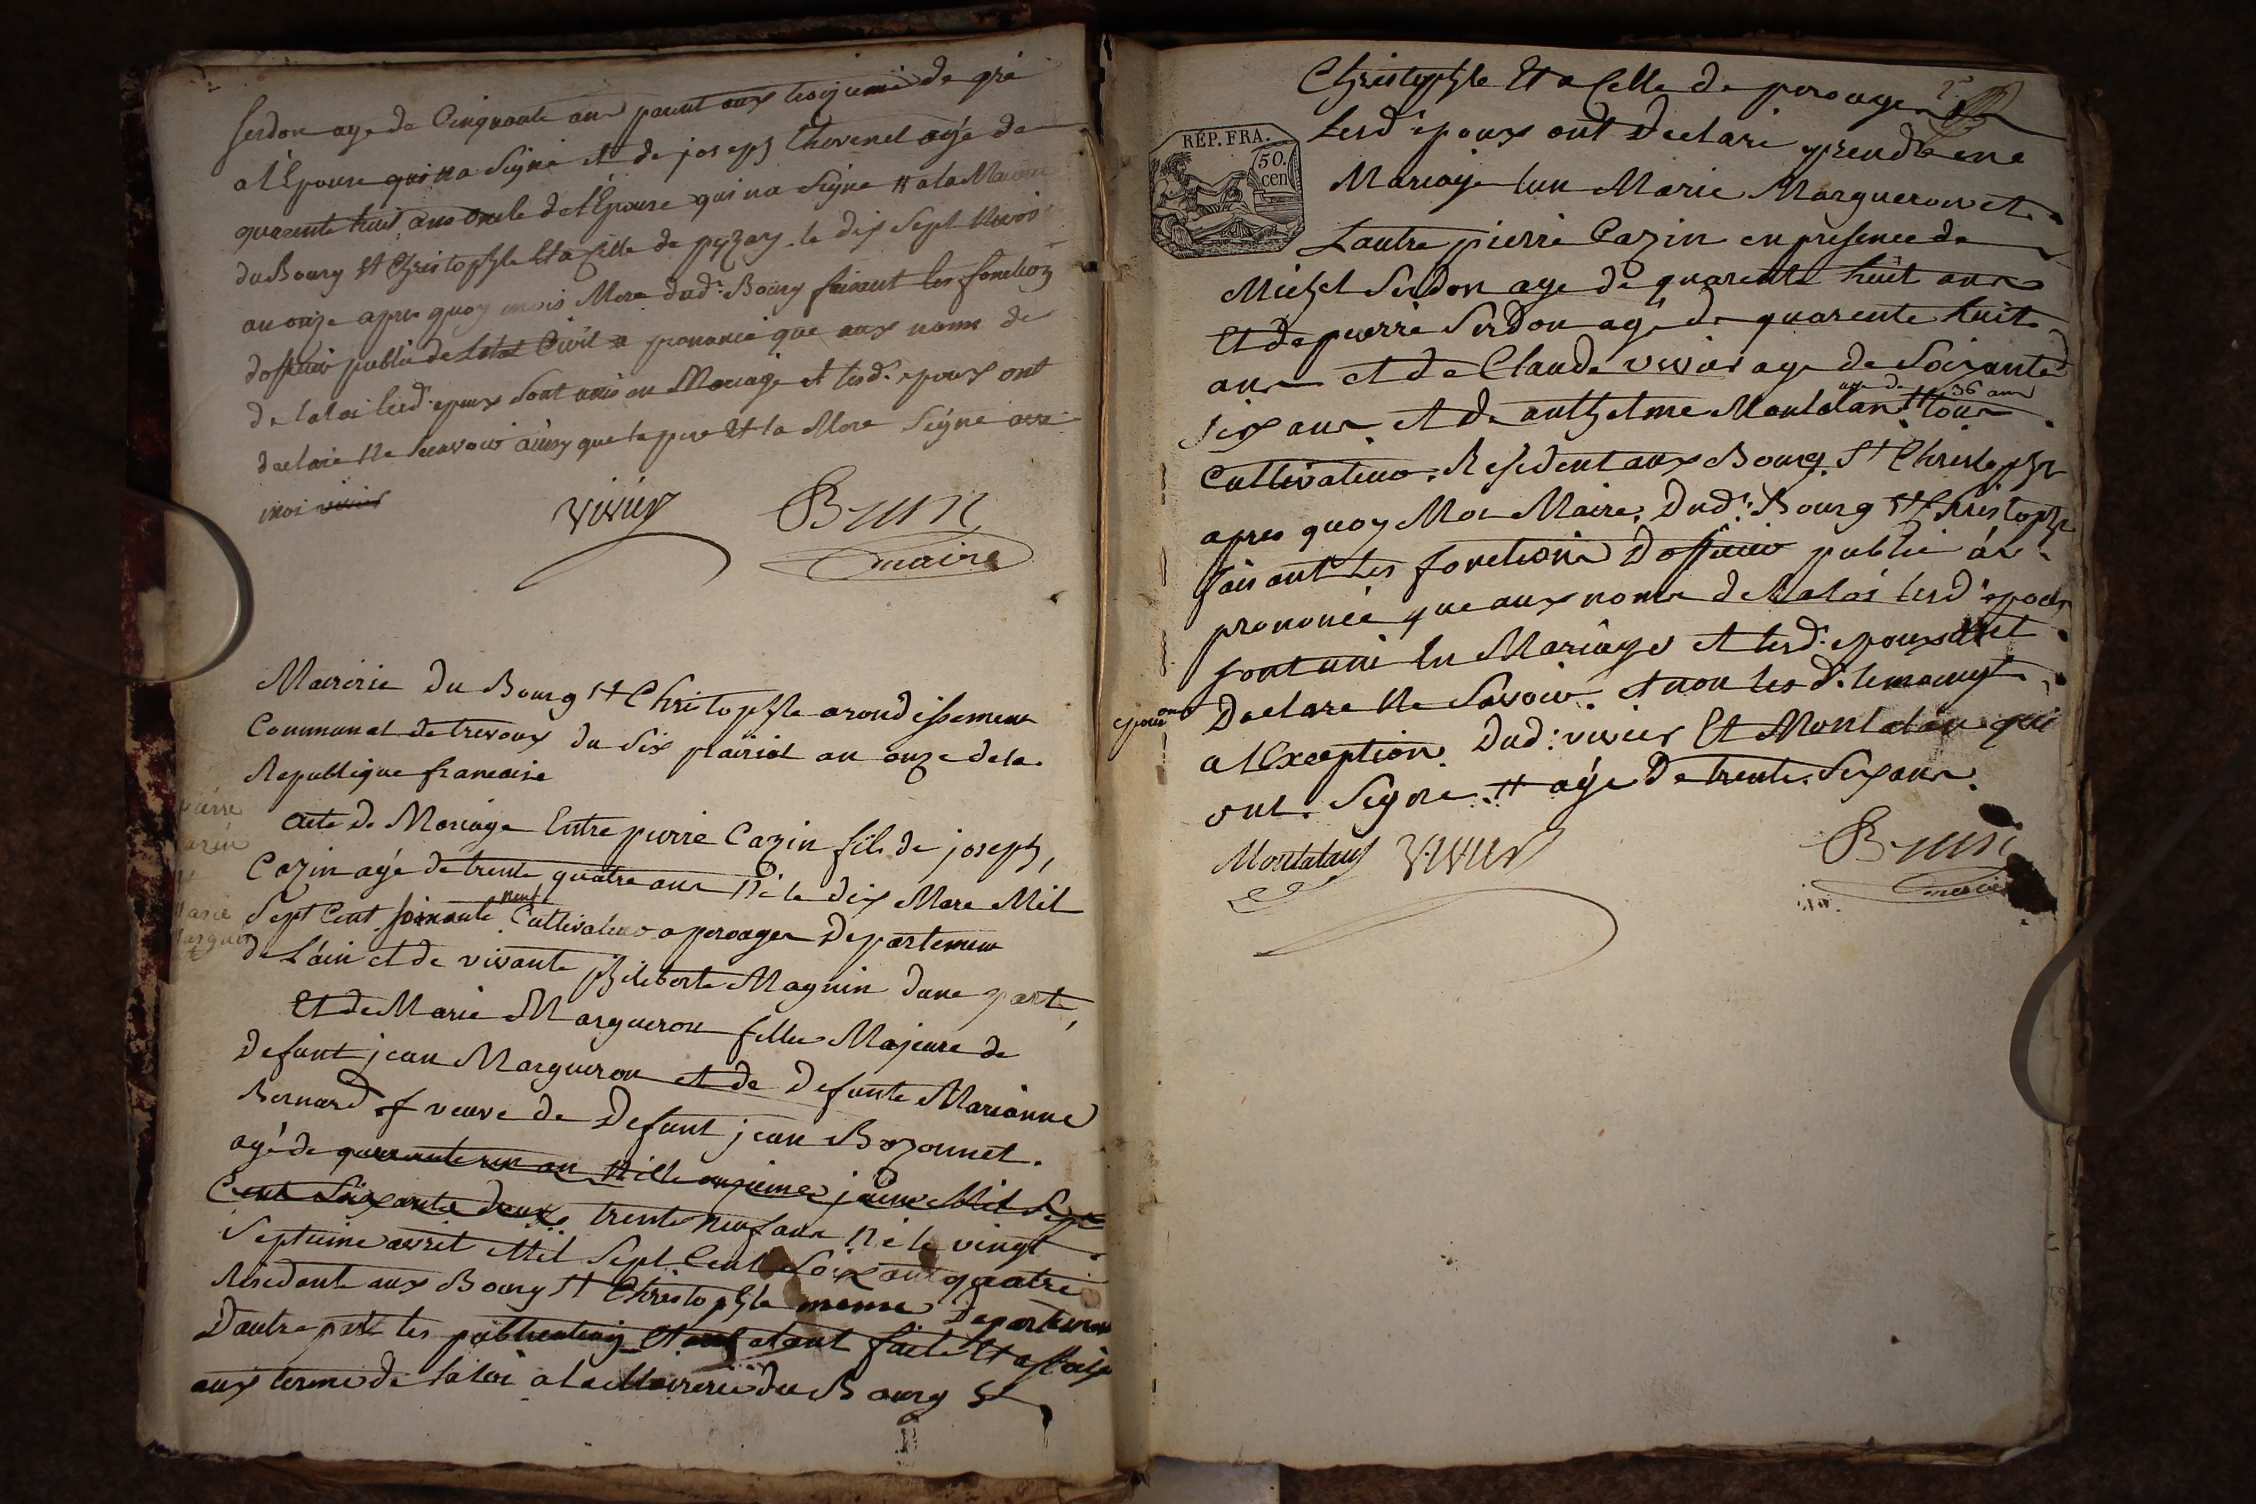 Serdon age de Cinquante ans parent aux troizieme de gré
a l'Epouse qui na Signé et de joseph thevenet agé de
quarente huit ans oncle de l'Epouse qui na Signe # a la Mairie
du Bourg St Christophle Et a Celle de pizay le dix Sept
an onze apres quoy mois Mere dud: Bourg faisant les fonction
dofficié public de letat Civil a prononcé que aux nome de
de la loi lesd: epoux Sont unis en Mariage et lesd: epoux ont
declaré Ne Scavoir ainsy que le pere Et la Mere Signe avec
moi vivier
vivier
Brun
maire
Mairerie du Bourg St Christophle arondissement
Communal de trevoux du Six plairial an onze dela
Republique francaise
acte de Mariage Entre pierre Cazin fils de joseph,
Cazin agé de trente quatre ans Né le dix Mars Mil
Sept Cent Soixante neuf Cultivateur a perouges Departement
de Lain et de vivante philiberte Magnin dune parte,
Et de Marie Margueron fille Majeure de
Defunt jean Margueron et de Defunte Marianne
Bernard f veuve de Defunt jean Bozonnet.
agé de quarante un an Mil Sept
Cent Soixante deux trente Neuf ans Né le vingt
Septieme avril Mil Sept Cent Soixante quatre
Résident aux Bourg St Christophle meme Departement
Dautre part les publications Et etant faite Et affiché
aux terme de la loi a la Mairerie du Bourg St
pierre
Cazin
et
Marie
Marguer
Christophle Et a Celle de perouges
RÉP. FRA.
50.
cen
Lesd: epoux ont Declaré prendre en
Mariage lun Marie Margueron et
Lautre pierre Cazin en presence de
Michel Serdon age de quarente huit ans
Et de pierre Serdon agé de quarente huit
ans et de Claude vivier age de Soixante
Six ans et de anthelme Montalan # agé de 36 ans tous
Cultivateur. Résident aux Bourg St Christophle
apres quoy Moi Maire. Dud: Bourg St Christophle
faisant les fonctions Dofficié public ár
prononcé que aux nome de la loi lesd: epoux
sont uni En Mariage et lesd. epoux ont
Declare Ne Savoir. et non les d: temoins
a lException Dud: vivier Et Montalan qui
ont Signe. # agé De trente Six ans.
Montalan
vivier
Brun
maire